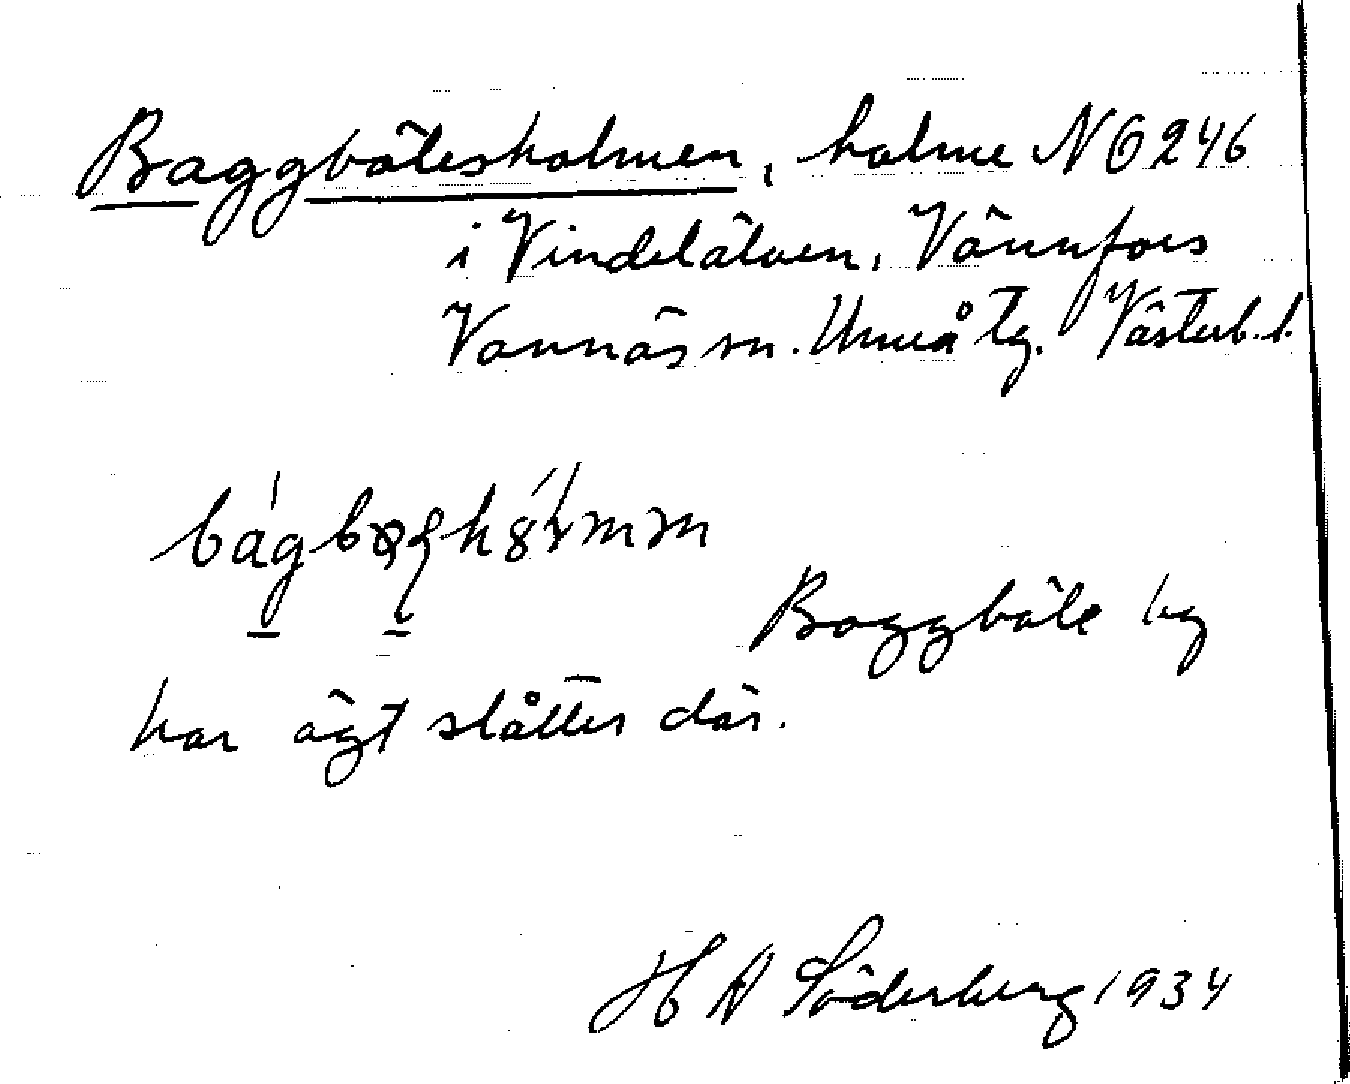 Baggbölesholmen, holme N 6246
i Vindelälven, Vännfors
Vännäs sn. Umeå tg. Västerb. l.
Baggböle by
har ägt slåtter där.
H A Söderberg 1934